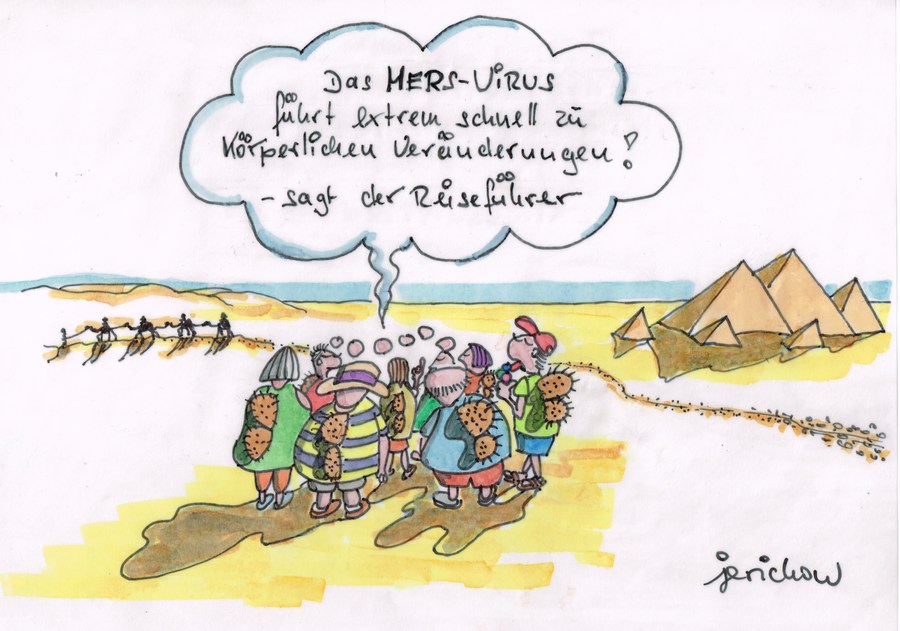 Das MERS-VIRUS
führt extrem schnell zu
Körperlichen Veränderungen!
- sagt der Reiseführer
jerichow